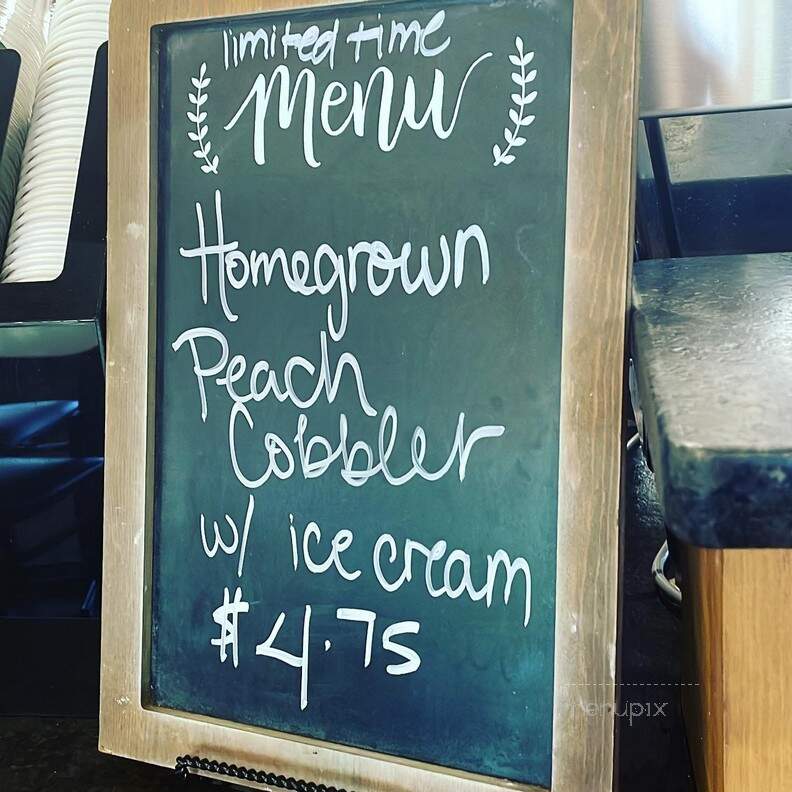 limited time
Menu
Homegrown
Peach
Cobbler
w/ ice cream
$4.75
menupix